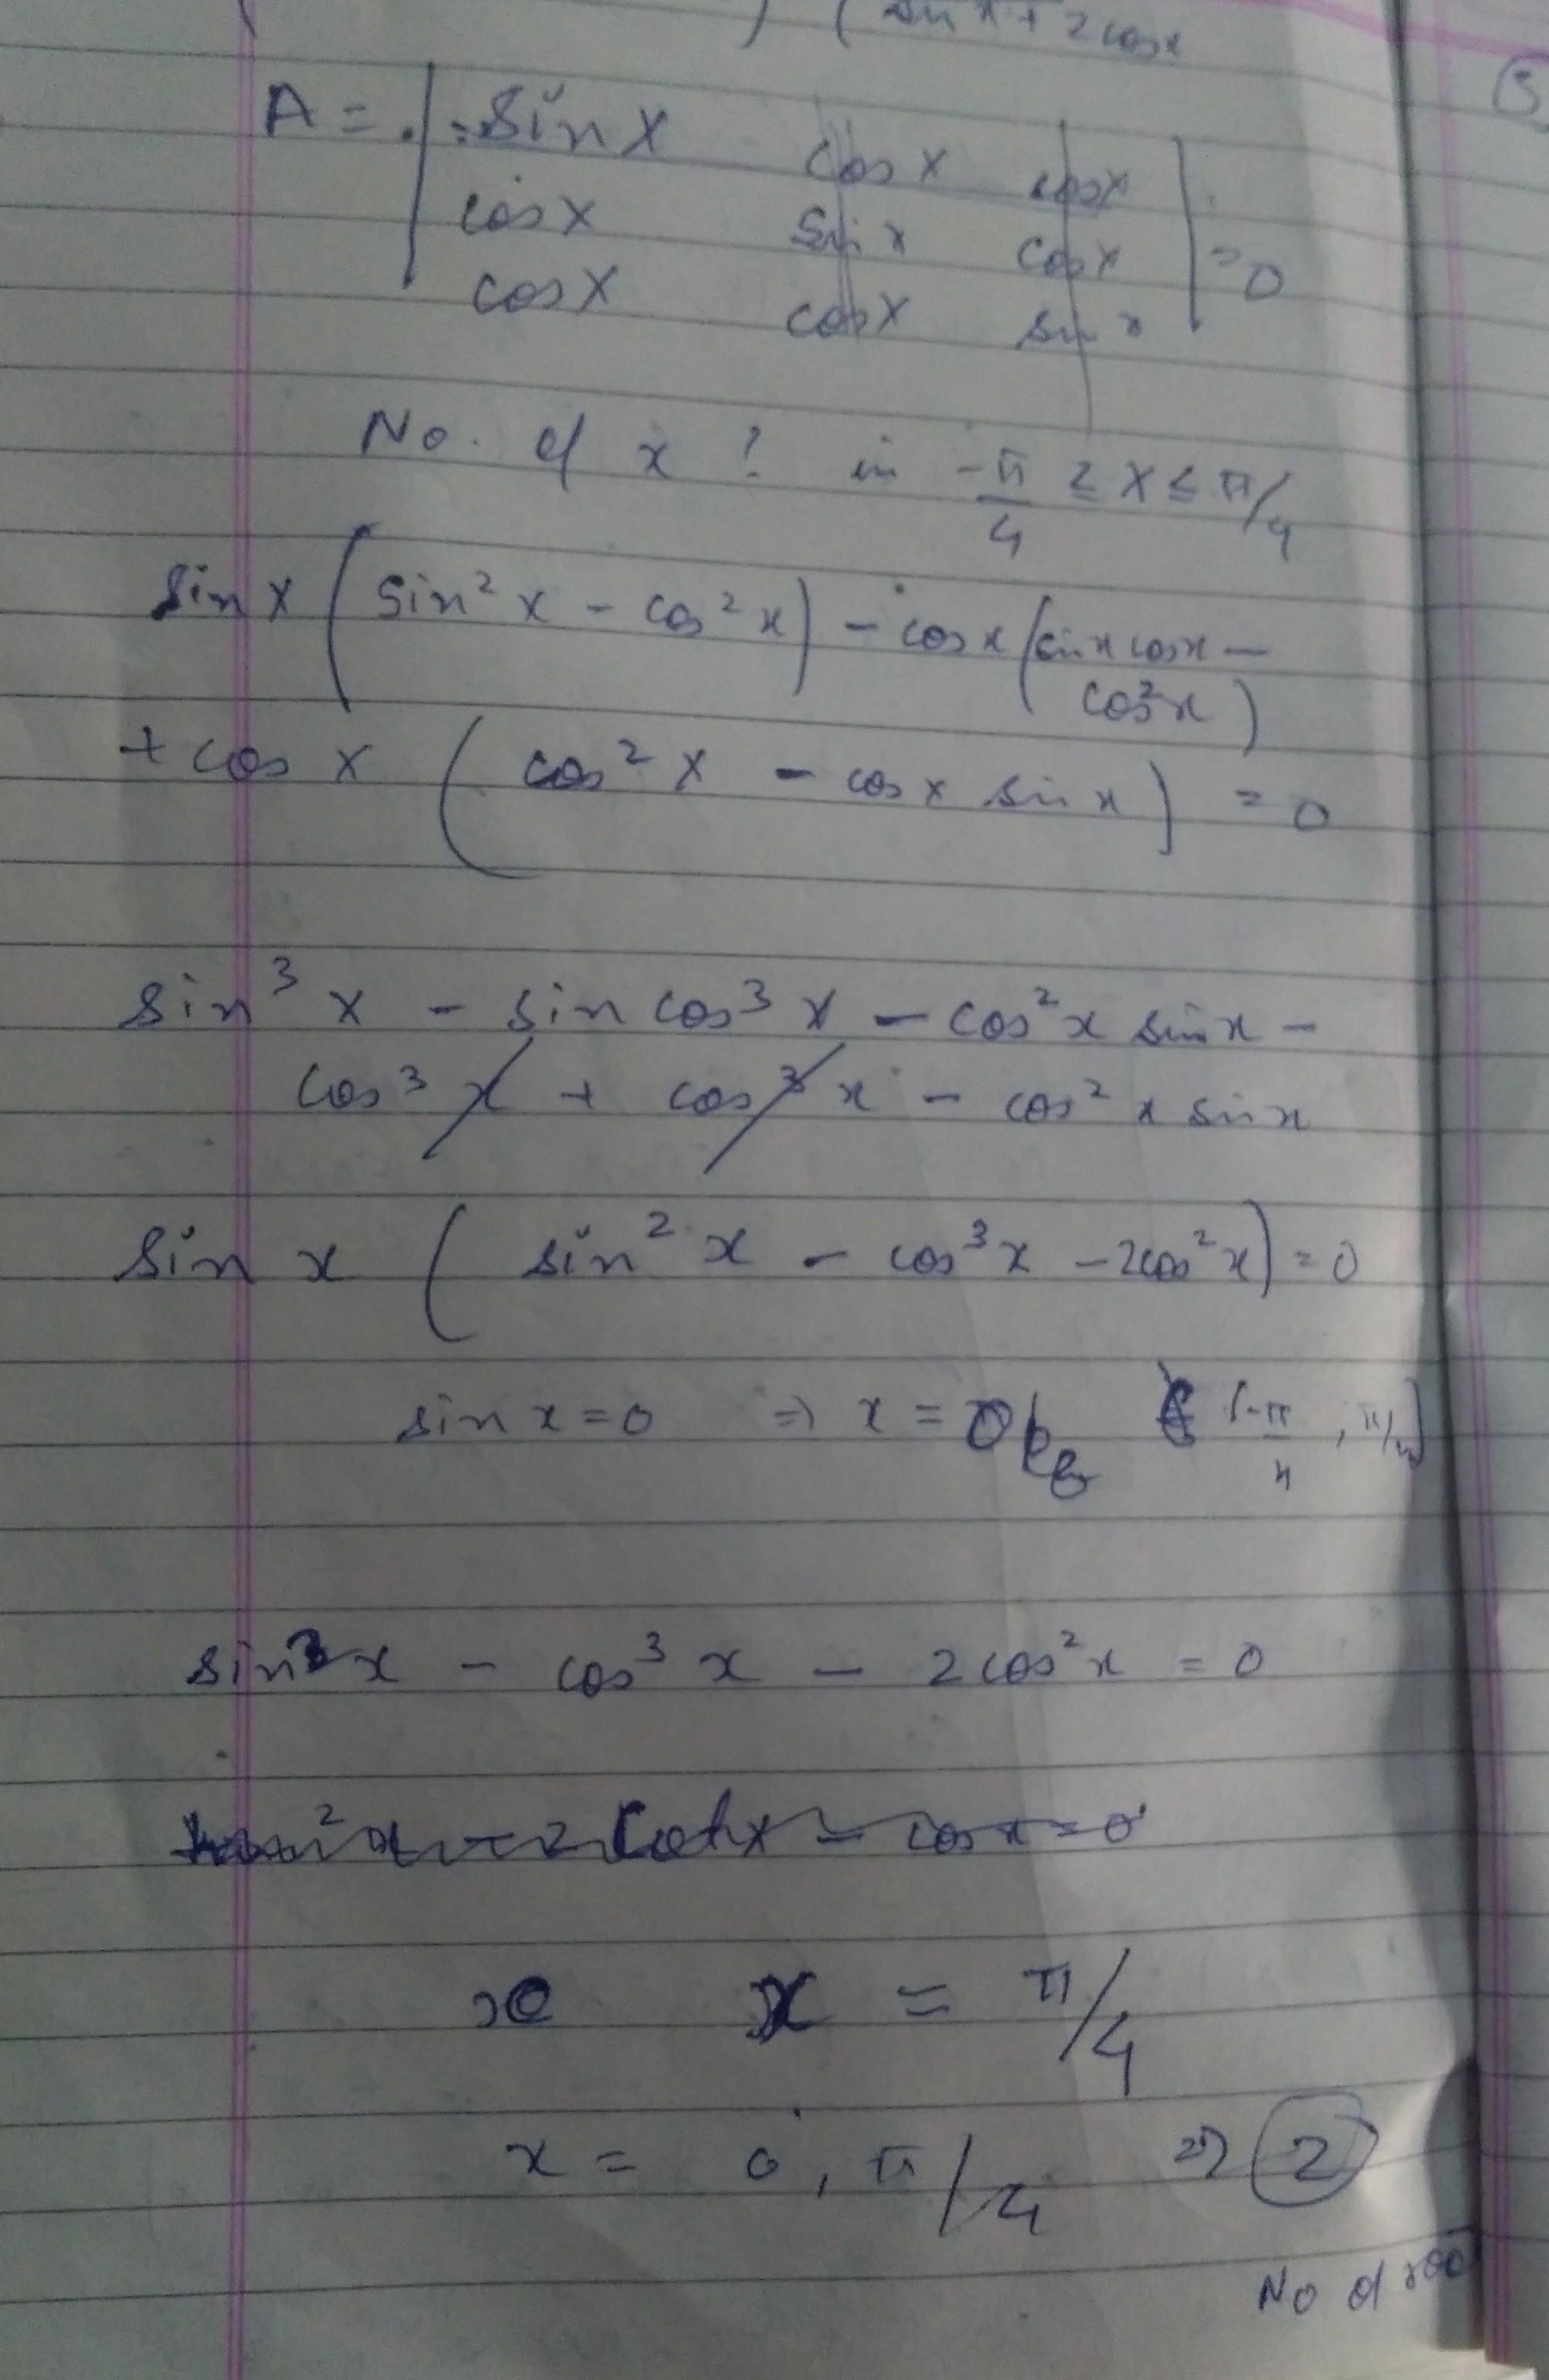 sin x + 2cosx
A = | sin x cos x cosx |
cos x sin x cos x = 0
cos x cos x sin x
No. of x ? in -π/4 ≤ x ≤ π/4
sin x ( sin² x - cos² x ) - cos x ( sin x cos x -
cos² x )
+ cos x ( cos² x - cos x sin x ) = 0
sin³ x - sin cos³ x - cos² x sin x -
cos³ x + cos³ x - cos² x sin x
sin x ( sin² x - cos³ x - 2cos² x ) = 0
sin x = 0 ⇒ x = 0 [-π/4 , π/4]
sin³ x - cos³ x - 2 cos² x = 0
x = π/4
x = 0 , π/4 ⇒ 2
No of